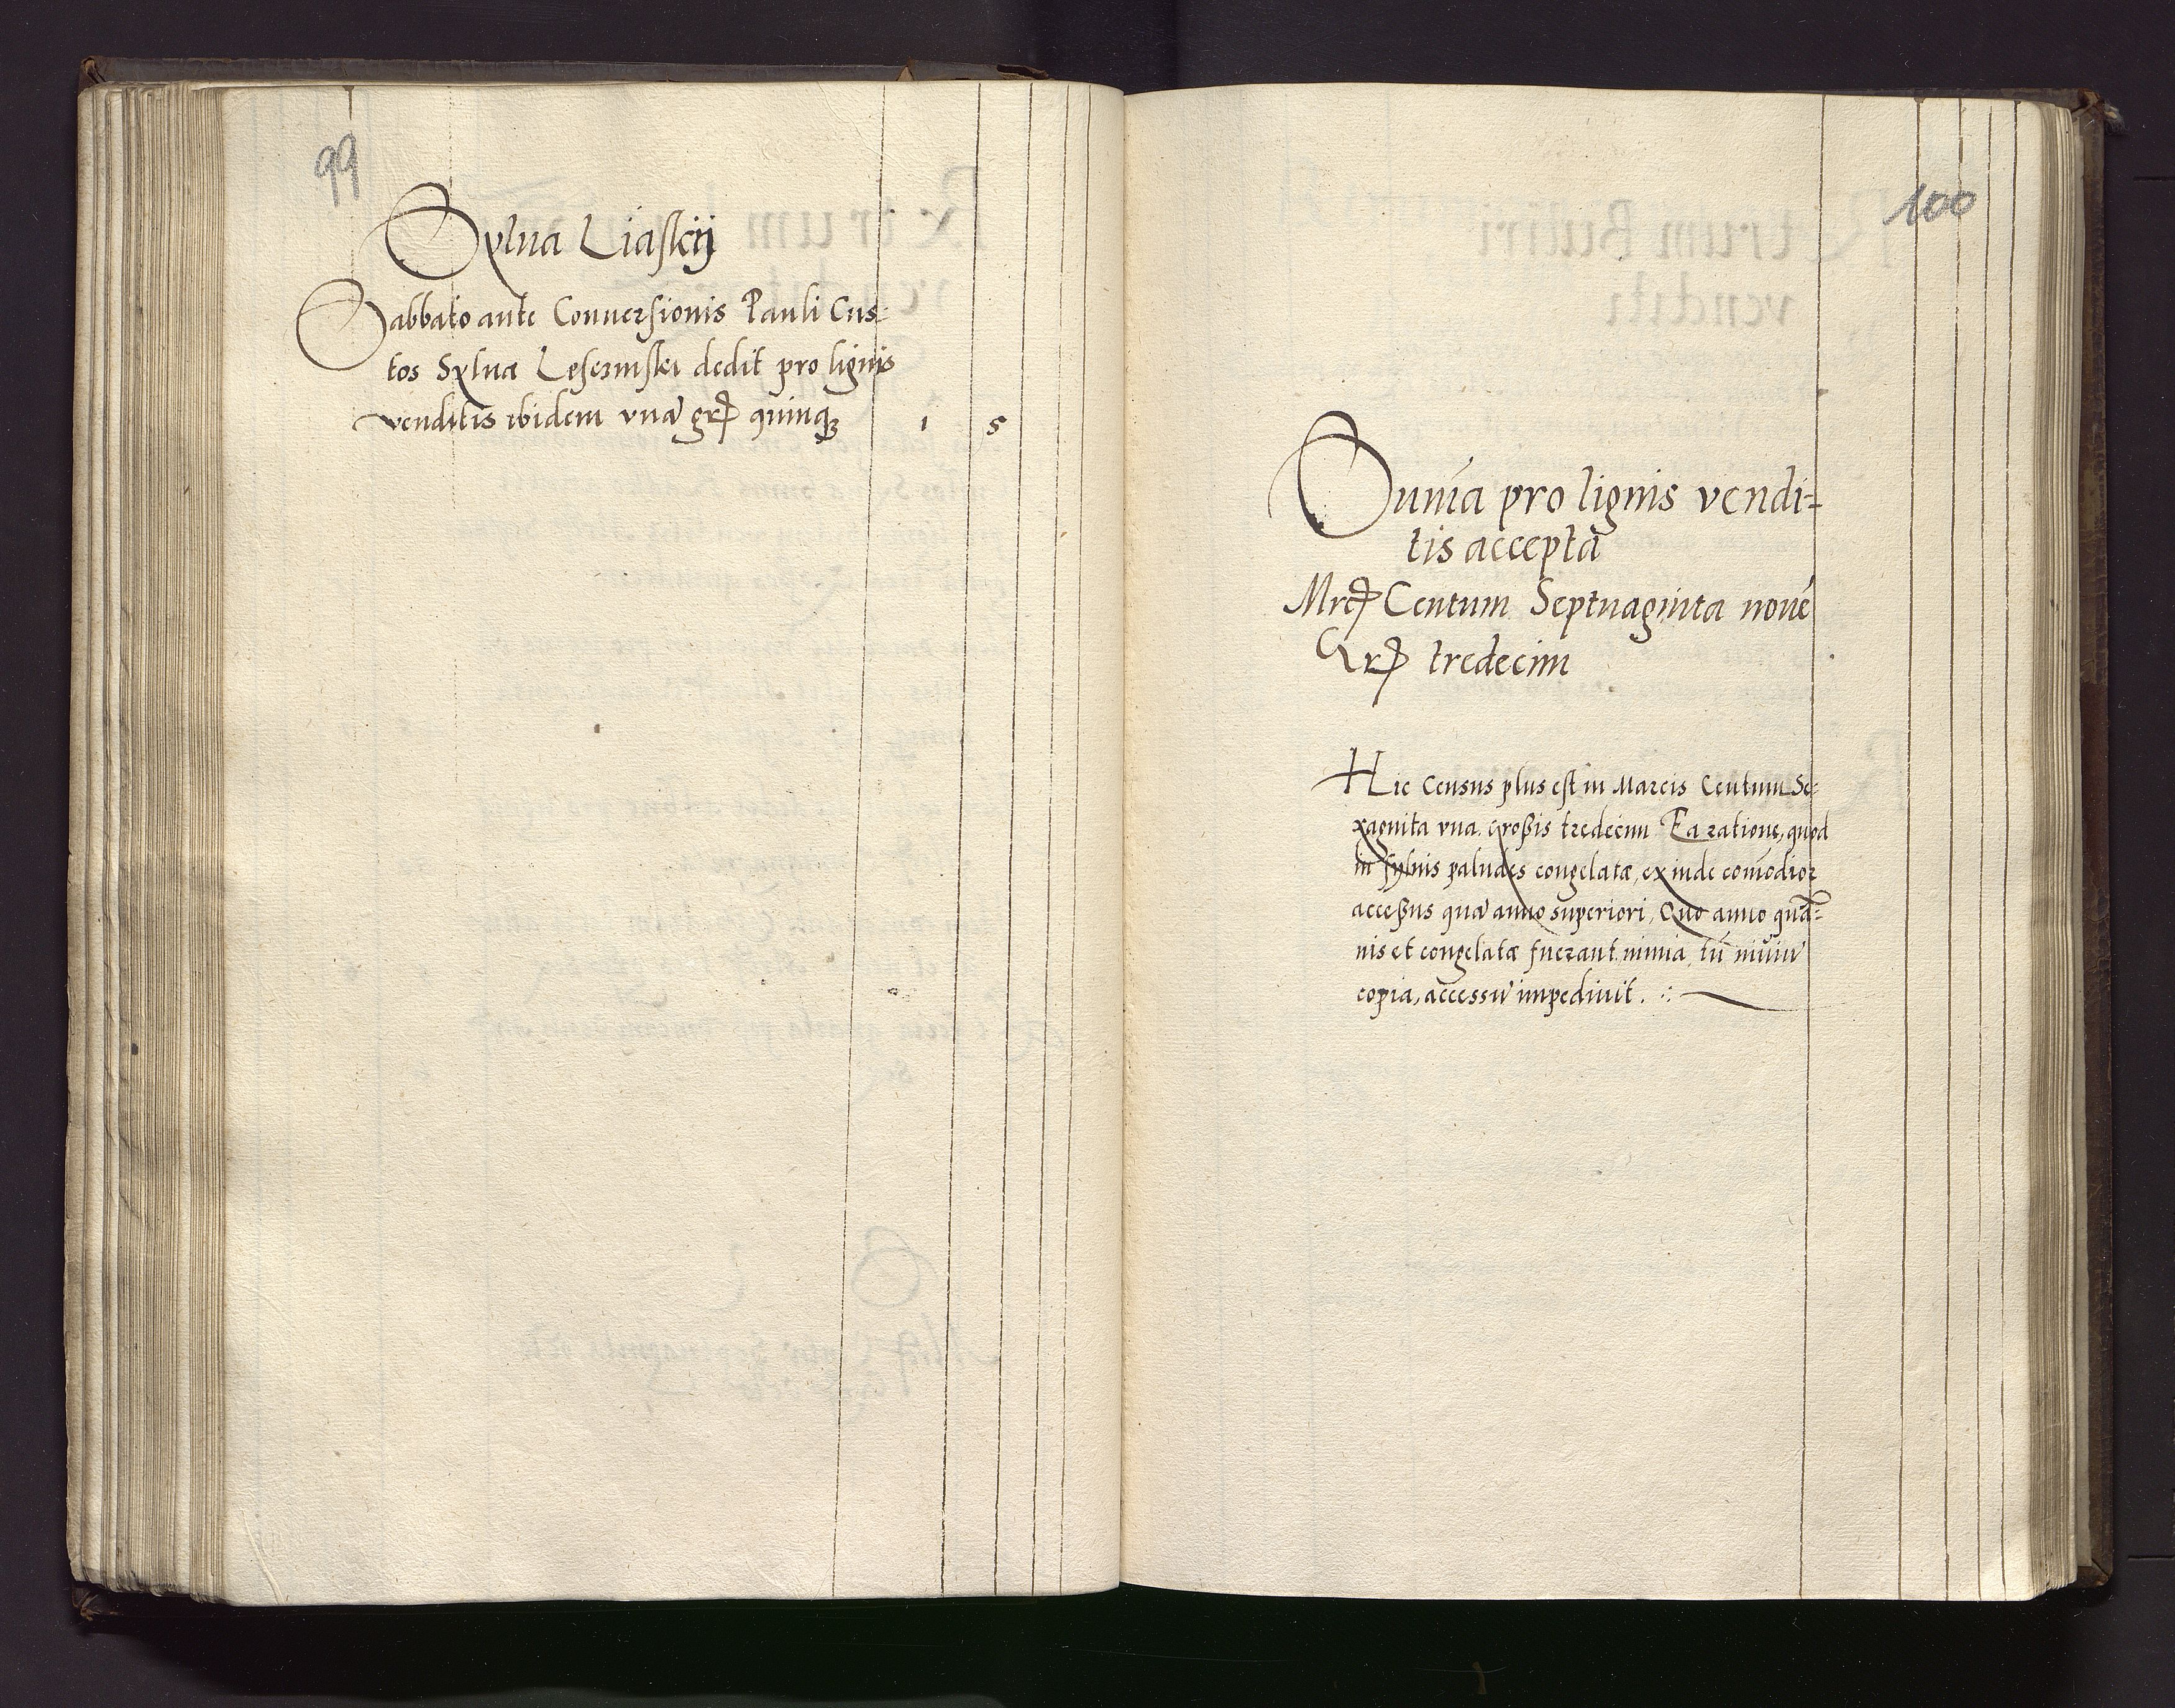 99
Sylua Liaskij
Sabbato ante Conuersionis Pauli Cus-
tos Sylua dedit pro lignis
venditis ibidem vnā grꝭ quinqꝫ 1 5
100
Sum̄a pro lignis vendi-
tis accepta
Mrcꝭ Centum Septuaginta nouē
Grꝭ tredecim
Hic Census plus est in Marcis Centum Se-
xaginta vna grossis tredecim Ea ratione, quod
in syluis paludes congelatæ, exinde com̄odior
accessus quā anno superiori, Quo anno quā-
nis et congelatæ fuerant, nimia tū niuiū
copia, accessū impediuit.